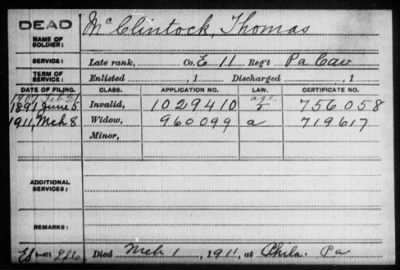 DEAD
NAME OF SOLDIER: McClintock, Thomas
SERVICE: Late rank, Co. E 11 Reg't Pa Cav
TERM OF SERVICE: Enlisted , 1 Discharged , 1
DATE OF FILING. CLASS. APPLICATION NO. LAW. CERTIFICATE NO.
1891 June 5 Invalid, 1029410 756058
1911, Mch 8 Widow, 960099 a 719617
Minor,
ADDITIONAL SERVICES:
REMARKS:
Died Mch 1, 1911, at Phila. Pa